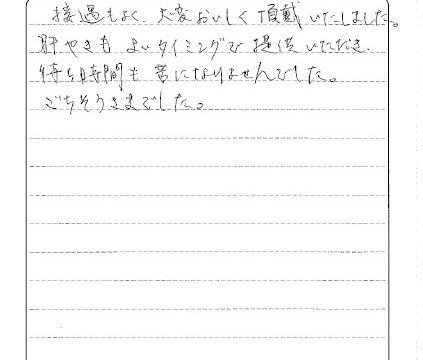 接遇もよく、大変おいしく頂戴いたしました。
肝やきも よいタイミングで 提供いただき、
待ち時間も 苦になりませんでした。
ごちそうさまでした。